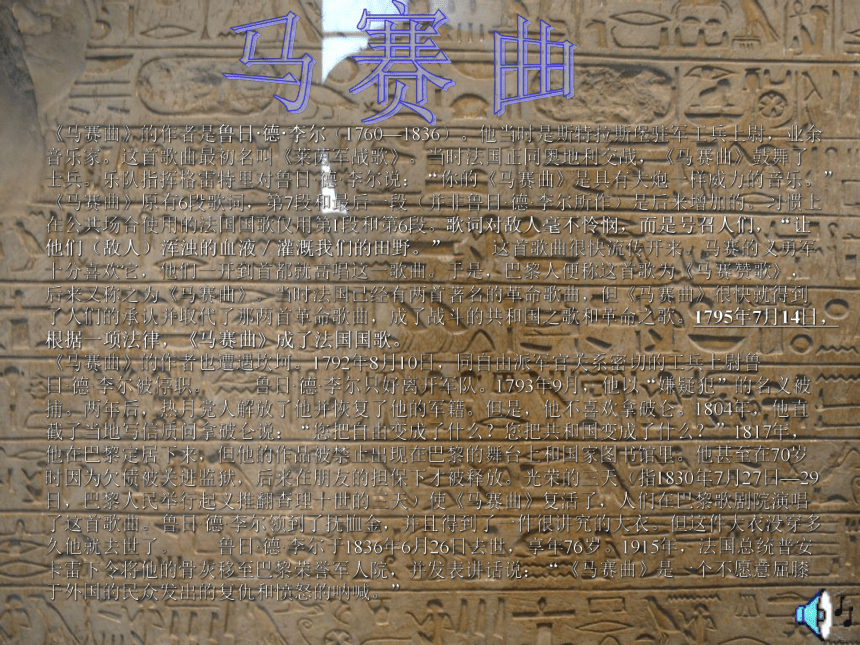 马赛曲
《马赛曲》的作者是鲁日·德·李尔（1760—1836）。他当时是斯特拉斯堡驻军工兵上尉，业余
音乐家。这首歌曲最初名叫《莱茵军战歌》。当时法国正同奥地利交战，《马赛曲》鼓舞了
士兵。乐队指挥格雷特里对鲁日·德·李尔说：“你的《马赛曲》是具有大炮一样威力的音乐。”
《马赛曲》原有6段歌词，第7段和最后一段（并非鲁日·德·李尔所作）是后来增加的。习惯上
在公共场合使用的法国国歌仅用第1段和第6段。歌词对敌人毫不怜悯，而是号召人们，“让
他们（敌人）浑浊的血液／灌溉我们的田野。” 这首歌曲很快流传开来，马赛的义勇军
十分喜欢它，他们一开到首都就高唱这一歌曲。于是，巴黎人便称这首歌为《马赛赞歌》，
后来又称之为《马赛曲》。当时法国已经有两首著名的革命歌曲，但《马赛曲》很快就得到
了人们的承认并取代了那两首革命歌曲，成了战斗的共和国之歌和革命之歌。1795年7月14日，
根据一项法律，《马赛曲》成了法国国歌。
《马赛曲》的作者也遭遇坎坷。1792年8月10日，同自由派军官关系密切的工兵上尉鲁
日·德·李尔被停职。 鲁日·德·李尔只好离开军队。1793年9月，他以“嫌疑犯”的名义被
捕。两年后，热月党人解放了他并恢复了他的军籍。但是，他不喜欢拿破仑。1804年，他直
截了当地写信质问拿破仑说：“您把自由变成了什么？您把共和国变成了什么？”1817年，
他在巴黎定居下来，但他的作品被禁止出现在巴黎的舞台上和国家图书馆里。他甚至在70岁
时因为欠债被关进监狱，后来在朋友的担保下才被释放。光荣的三天（指1830年7月27日—29
日，巴黎人民举行起义推翻查理十世的三天）使《马赛曲》复活了，人们在巴黎歌剧院演唱
了这首歌曲。鲁日·德·李尔领到了抚恤金，并且得到了一件很讲究的大衣。但这件大衣没穿多
久他就去世了。 鲁日·德·李尔于1836年6月26日去世，享年76岁。1915年，法国总统普安
卡雷下令将他的骨灰移至巴黎荣誉军人院，并发表讲话说：“《马赛曲》是一个不愿意屈膝
于外国的民众发出的复仇和愤怒的呐喊。”